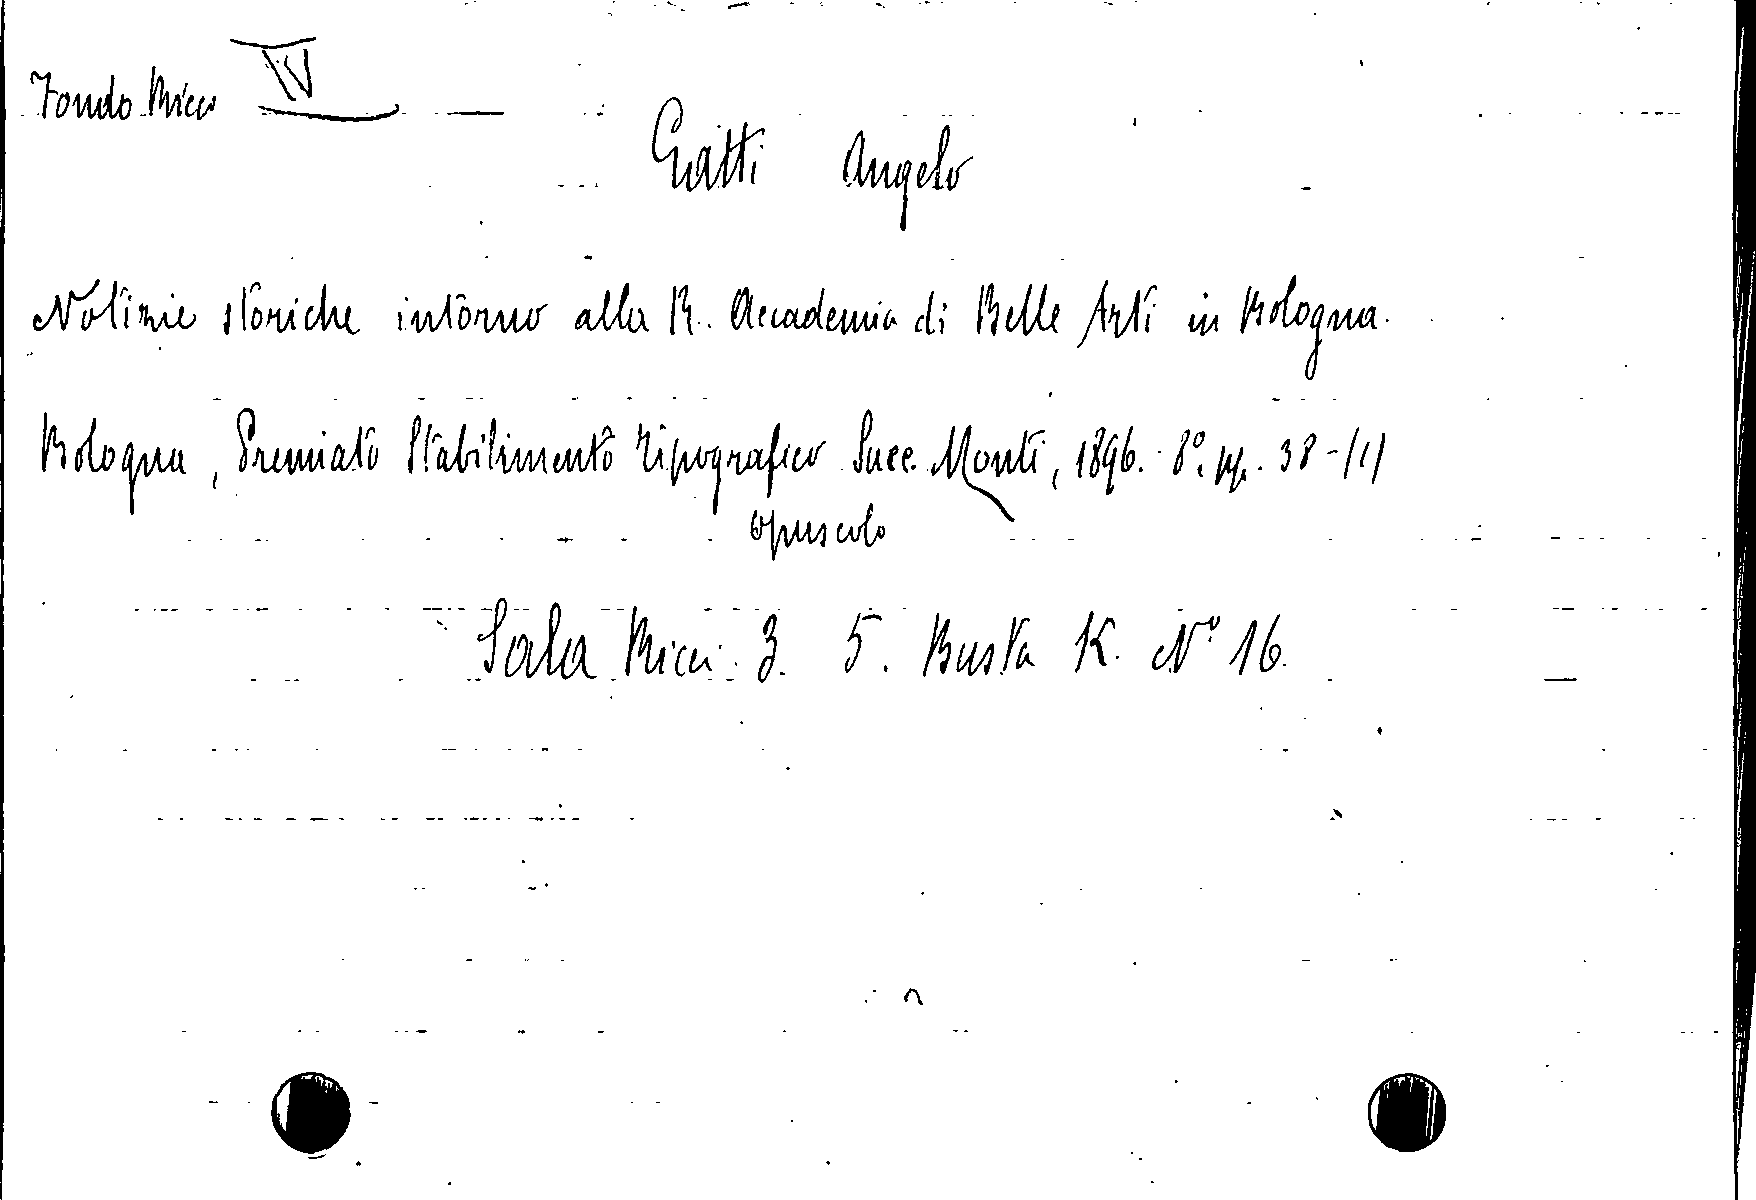 Fondo Ricci IV
Gatti Angelo
Notizie storiche intorno alla R. Accademia di Belle Arti in Bologna.
Bologna, Premiato Stabilimento Tipografico Succ. Monti, 1896. 8º. pp. 38-(1)
opuscolo
Sala Ricci. 3. 5. Busta K. Nº 16.